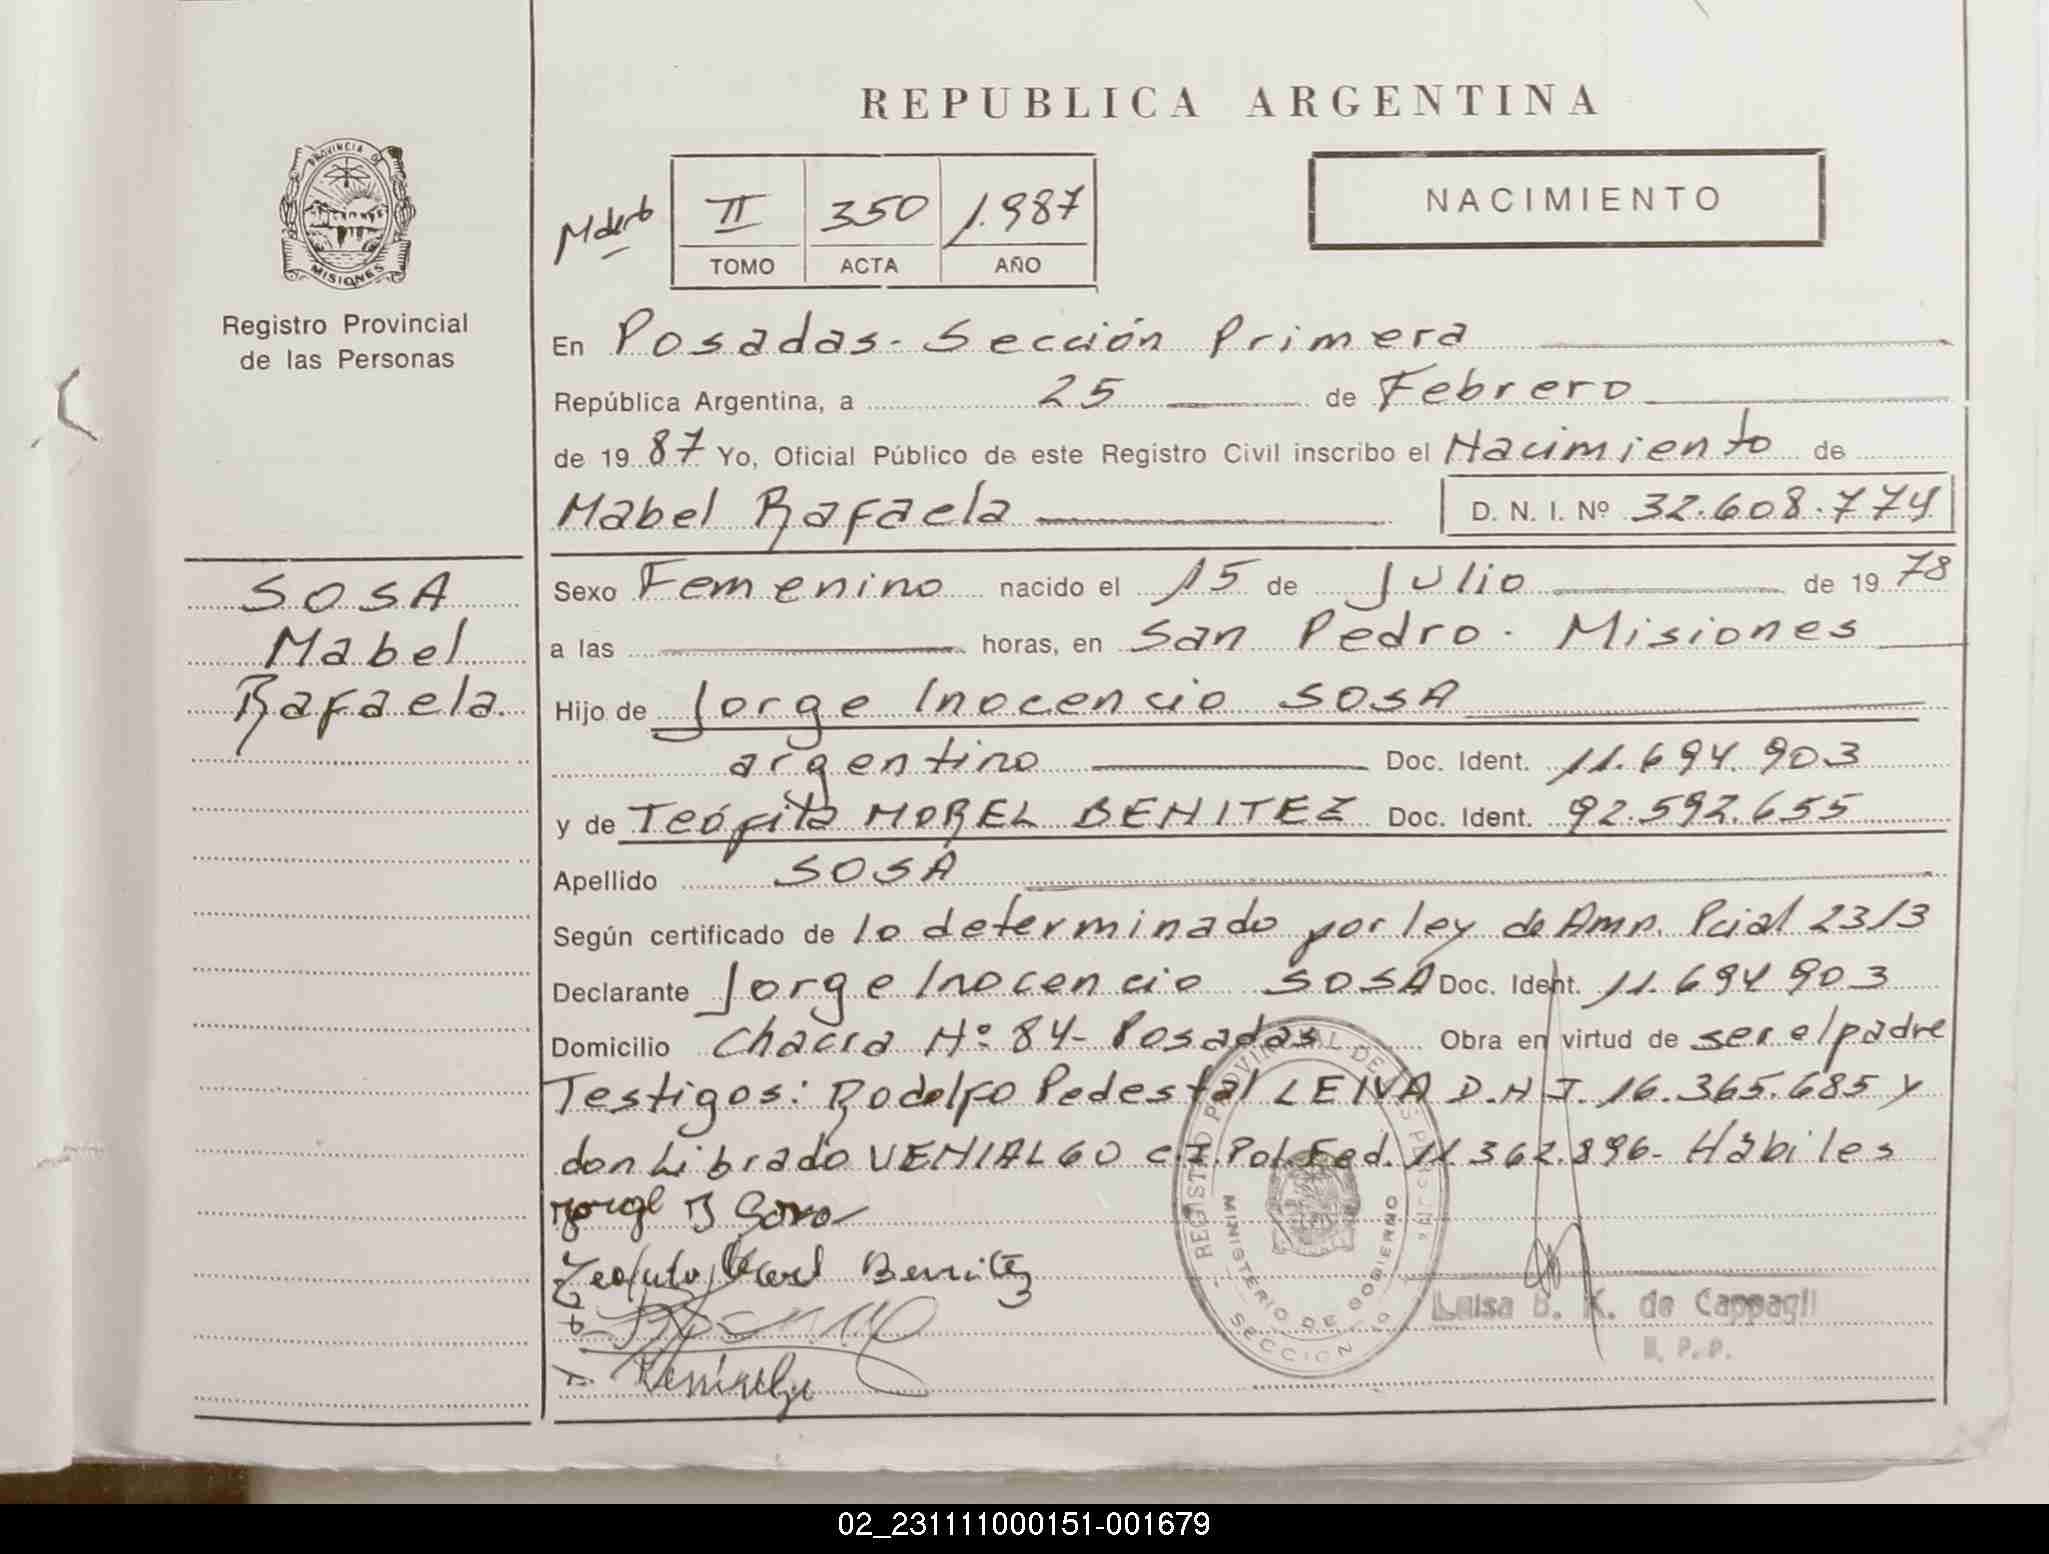 REPUBLICA ARGENTINA
PROVINCIA DE
MISIONES
Registro Provincial
de las Personas
II 350 1.987
TOMO ACTA AÑO
NACIMIENTO
En Posadas - Sección Primera
República Argentina, a 25 de Febrero
de 1987 Yo, Oficial Público de este Registro Civil inscribo el Nacimiento de
Mabel Rafaela D. N. I. Nº 32.608.774
SOSA
Mabel
Rafaela
Sexo Femenino nacido el 15 de Julio de 1978
a las horas, en San Pedro - Misiones
Hijo de Jorge Inocencio SOSA
argentino Doc. Ident. 11.694.903
y de Teófila MOREL BENITEZ Doc. Ident. 92.592.655
Apellido SOSA
Según certificado de lo determinado por ley de Amn. Pcial 2313
Declarante Jorge Inocencio SOSA Doc. Ident. 11.694 903
Domicilio Chacra Nº 84 - Posadas Obra en virtud de ser el padre
Testigos: Rodolfo Pedestal LEIVA D.N.I. 16.365.685 y
don Librado VENIALGO C.I. Pol. Fed. 11.362.896 - Hábiles
Benitez
REGISTRO PROVINCIAL DE LAS PERSONAS
MINISTERIO DE GOBIERNO
SECCION 1º
Luisa B. K. de Cappagli
02_231111000151-001679